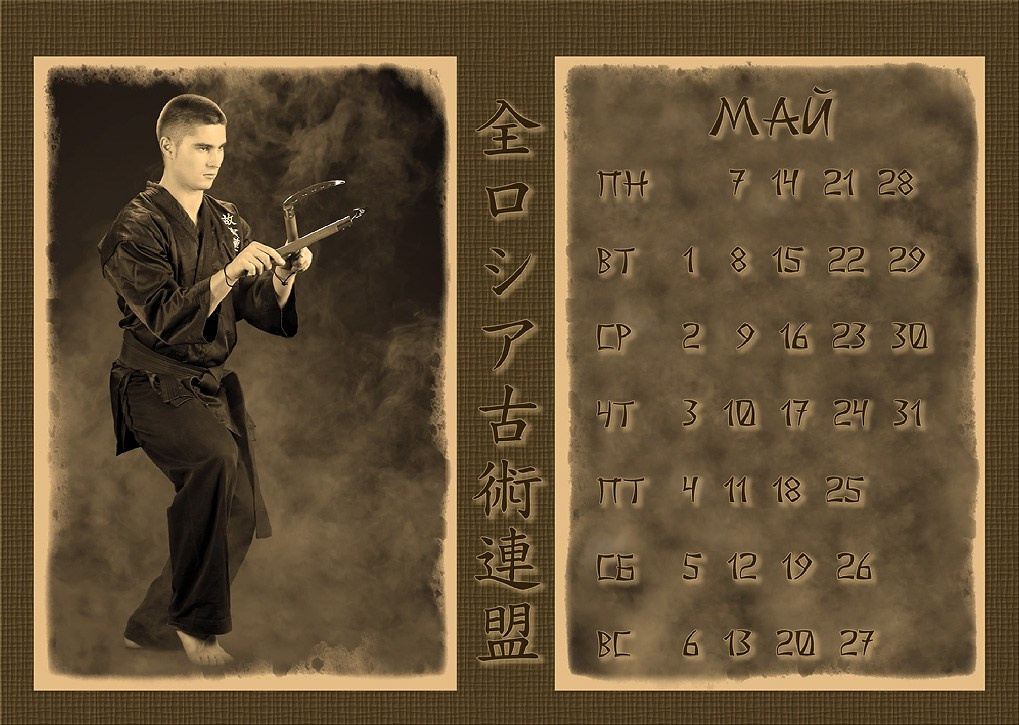 全ロシア古術連盟
МАЙ
ПН 7 14 21 28
ВТ 1 8 15 22 29
СР 2 9 16 23 30
ЧТ 3 10 17 24 31
ПТ 4 11 18 25
СБ 5 12 19 26
ВС 6 13 20 27